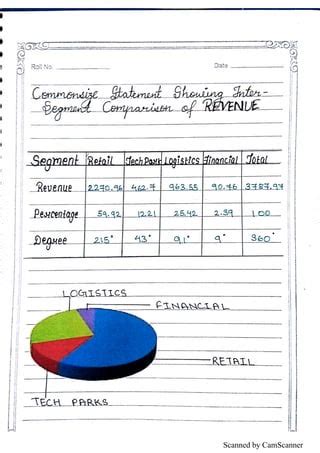 Roll No. Date
Commonsize Statement Showing Inter-
Segment Comparison of REVENUE
Segment Retail Tech Park Logistics Financial Total
Revenue 2270.96 462.7 963.55 90.76 3787.97
Percentage 59.92 12.21 25.42 2.39 100
Degree 215° 43° 91° 9° 360°
LOGISTICS
FINANCIAL
RETAIL
TECH PARKS
Scanned by CamScanner